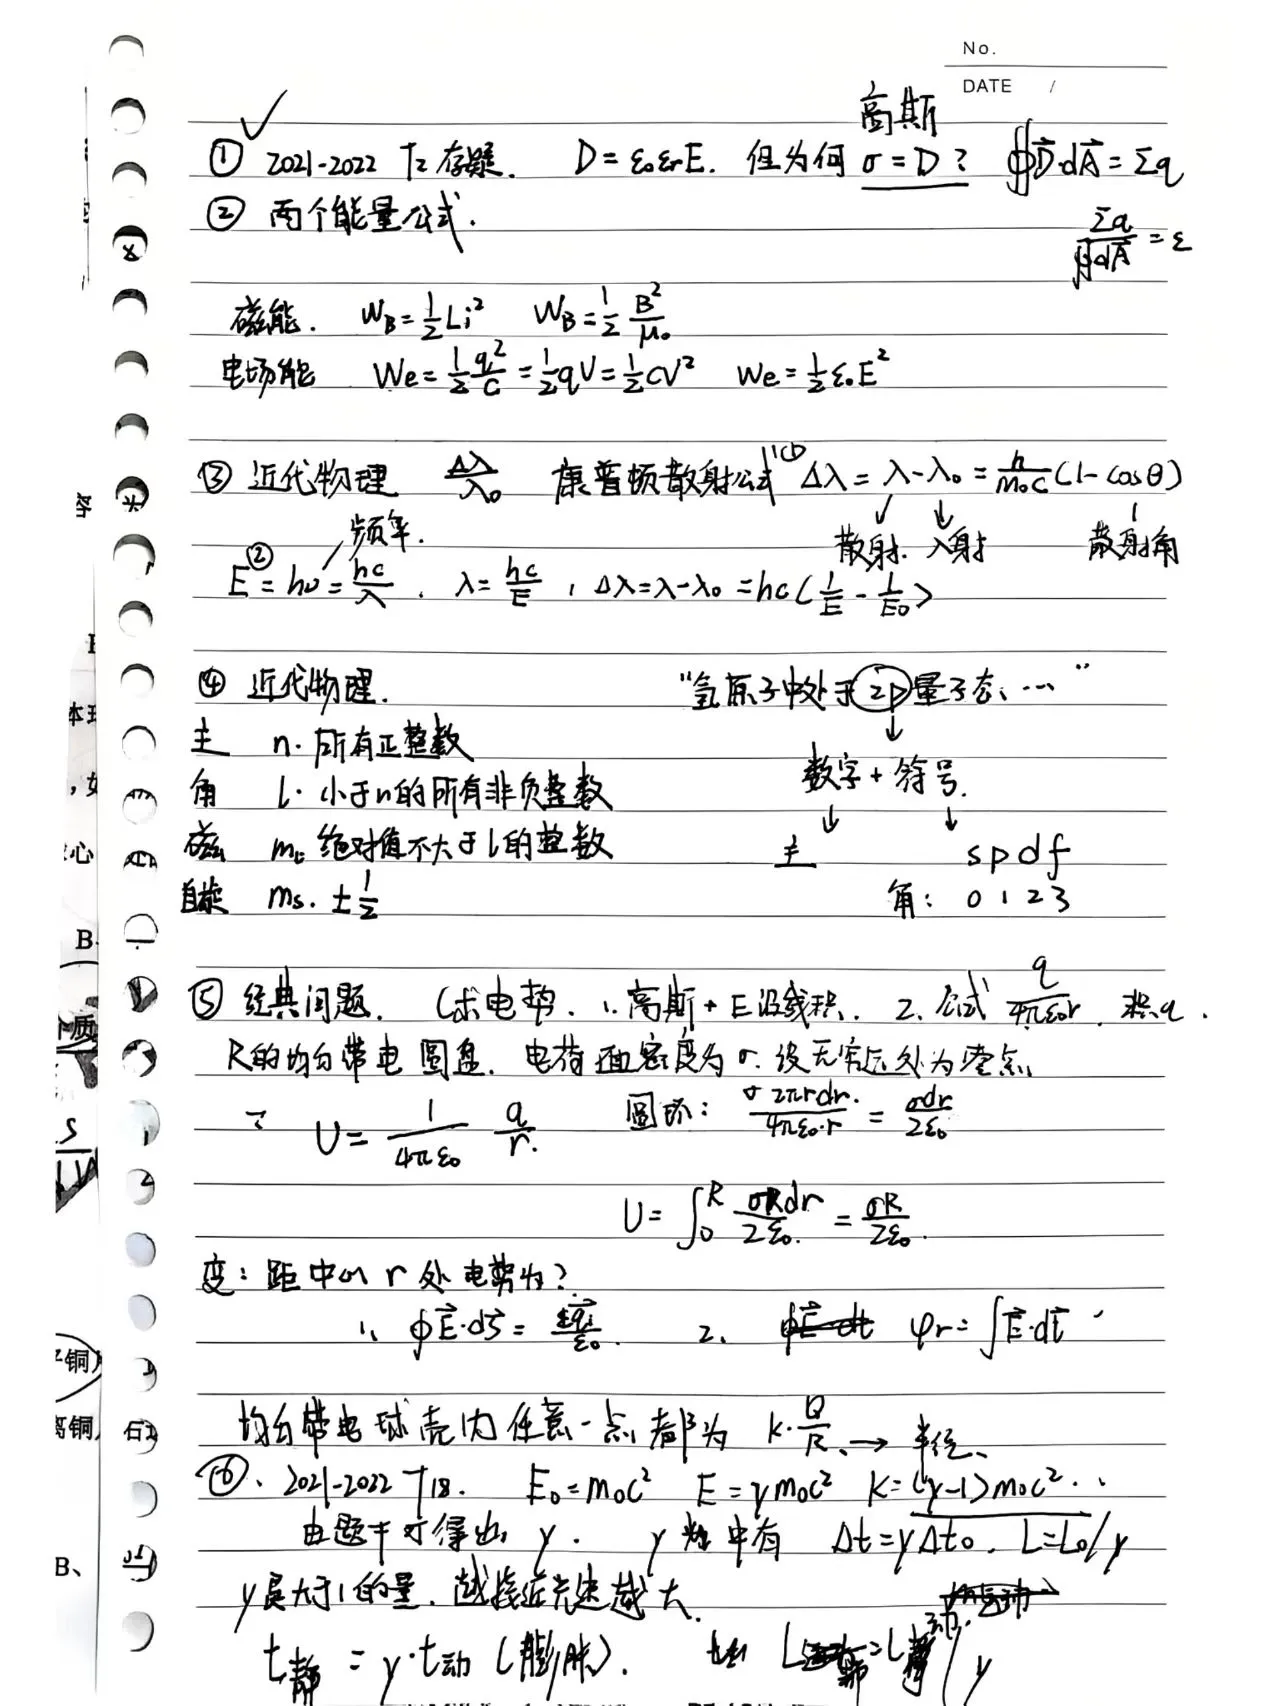 No.
DATE /
高斯
① 2021-2022 T2 存疑. D=ε₀εrE. 但为何 σ=D? ∯D⃗·dA⃗=Σq
② 两个能量公式.
Σq/∯dA⃗=ε
磁能. W_B=1/2 Li² W_B=1/2 B²/μ₀
电场能 We=1/2 q²/C=1/2 qU=1/2 CV² We=1/2 ε₀E²
③ 近代物理 Δλ/λ₀ 康普顿散射公式 ① Δλ=λ-λ₀=h/m₀c(1-cosθ)
频率. 散射. 入射 散射角
② E=hν=hc/λ. λ=hc/E, Δλ=λ-λ₀=hc(1/E-1/E₀)
④ 近代物理. “氢原子中处于2p量子态、…”
主 n. 所有正整数
角 l. 小于n的所有非负整数 数字+符号.
磁 m_l 绝对值不大于l的整数 主 s p d f
自旋 ms. ±1/2 角: 0 1 2 3
⑤ 经典问题. (求电势. 1.高斯+E沿线积. 2.公式 q/4πε₀r. 积q.
R的均匀带电圆盘. 电荷面密度为σ.设无穷远处为零点
U=1/4πε₀ q/r. 圆环: σ2πrdr./4πε₀·r=σdr/2ε₀
U=∫₀ᴿ σRdr/2ε₀.=σR/2ε₀.
变:距中心r处电势为?
1. ∮E⃗·dS⃗=Σq/ε₀. 2. φr=∫E⃗·dl⃗
均匀带电球壳内任意一点都为 k·Q/R.→半径、
⑥. 2021-2022 T18. E₀=m₀c² E=γm₀c² K=(γ-1)m₀c²..
由题干可得出γ. γ 中有 Δt=γΔt₀. L=L₀/γ
γ是大于1的量.越接近光速越大.
t静=γ·t动(膨胀). L =L /γ
容
本
心
B
质
S
铜
离铜
B、